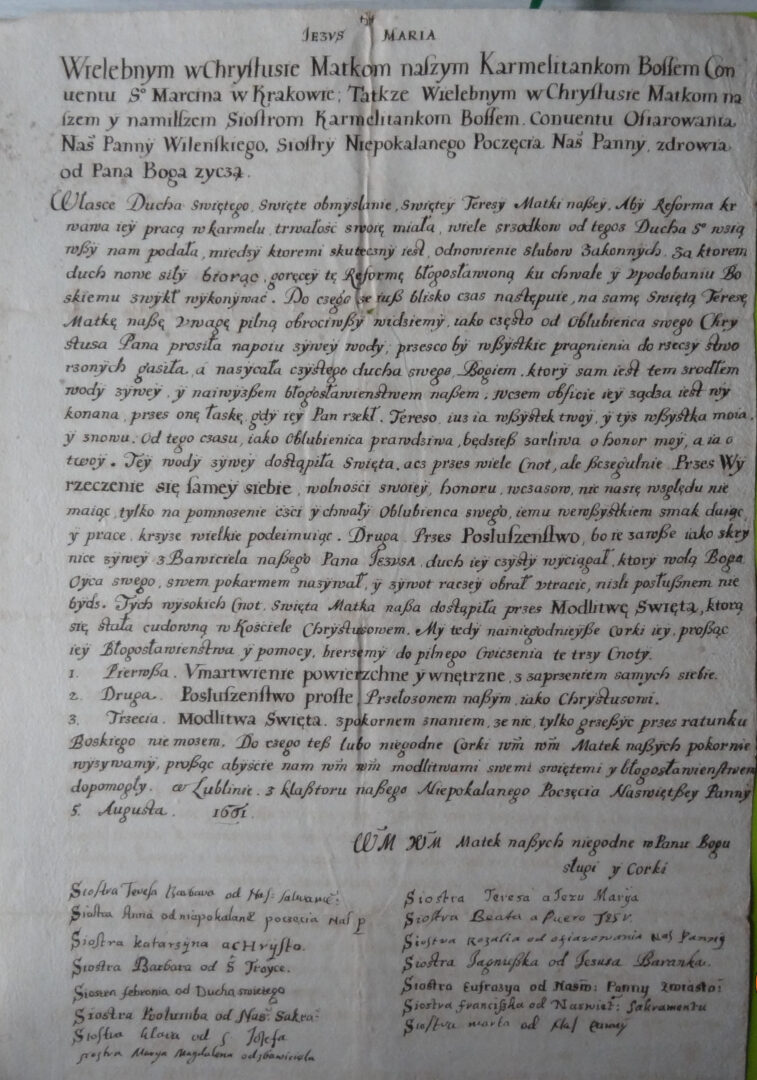 JEZVS MARIA
Wielebnym w Chrystusie Matkom naszym Karmelitankom Bossem Con
uentu Sº Marcina w Krakowie; Tatkze Wielebnym w Chrystusie Matkom na
szem y namilszem Siostrom Karmelitankom Bossem. Conuentu Ofiarowania
Naś Panny Wilenskiego, Siostry Niepokalanego Poczęcia Naś Panny, zdrowia
od Pana Boga zyczą.
Wlasce Ducha swiętego, swięte obmyslanie, swiętey Teresy Matki naßey, Aby Reforma kr
wawa iey pracą w karmelu, trwałość swoię miała, wiele srzodkow od tegos Ducha Sº wzią
wßy nam podała, miedzy ktoremi skuteczny iest, odnowienie slubow Zakonnych. Za ktorem
duch nowe siły biorąc, goręcey tę Reformę błogosławioną ku chwale y vpodobaniu Bo
skiemu zwykł wykonywać. Do czego se iuß blisko czas następuie, na samę swiętą Teresę
Matkę naßę vwagę pilną obrociwßy widziemy, iako często od Oblubieńca swego Chry
stusa Pana prosiła napoiu zywey wody; przesco by wßystkie pragnienia do rzeczy stwo
rzonych gasiła, a nasycała czystego ducha swego, Bogiem, ktory sam iest tem srodłem
wody zywey, y naiwyzßem błogosławienstwem naßem, wczem obficie iey ządza iest wy
konana, przes onę łaskę, gdy iey Pan rzekł. Tereso, iuz ia wßystek twoy, y tys wßystka moia,
y znowu. Od tego czasu, iako Oblubienica prawdziwa, będzieß zarliwa o honor moy, a ia o
twoy. Tey wody zywey dostąpiła swięta, acz przes wiele Cnot, ale ßczegulnie Przes Wy
rzeczenie się samey siebie, wolności swoiey, honoru, wczasow, nic nasię względu nie
maiąc, tylko na pomnozenie cści y chwały Oblubienca swego, iemu wewßystkiem smak daiąc,
y prace, krzyze wielkie podeimuiąc. Druga. Przes Posluszenstwo, bo ie zawße iako skry
nice zywey z Bawiciela naßego Pana Jezusa, duch iey czysty wyciągał, ktory wolą Boga
Oyca swego, swem pokarmem nazywał, y zywot raczey obrał vtracic, nizli posłußnem nie
byds. Tych wysokich Cnot, Swięta Matka naßa dostąpiła przes Modlitwę Swięta, ktorą
się stała cudowną w Kościele Chrystusowem. My tedy nainiegodnieyße Corki iey, proßąc
iey Błogosławienstwa y pomocy, bierzemy do pilnego Cwiczenia te trzy Cnoty.
1. Pierwßa. Vmartwienie powierzchne y wnętrzne, z zaprzeniem samych siebie.
2. Druga. Posluszenstwo proste, Przełozonem naßym, iako Chrystusowi.
3. Trzecia. Modlitwa Swięta. zpokornem znaniem, ze nic, tylko grzeßyc przes ratunku
Boskiego nie mozem. Do czego teß lubo niegodne Corki wm̃ wm̃ Matek naßych pokornie
wzywamy, proßąc abyście nam wm̃ wm̃ modlitwami swemi swiętemi y błogosławienstwem
dopomogły. w Lublinie. z klaßtoru naßego Niepokalanego Poczęcia Naswiętßey Panny
5. Augusta. 1661.
WM̃ WM̃ Matek naßych niegodne w Panu Bogu
sługi y Corki
Siostra Teresa Barbara od Naś:
Siostra Anna od niepokalanė poczęcia Naś p
Siostra katarzyna a CHrysto.
Siostra Barbara od Ṡ Troyce.
Siostra febronia od Ducha swiętego
Siostra Kolumba od Naś: Sakra:
Siostra klara od S Jozefa
siostra Marya Magdalena odzbawiciela
Siostra Teresa a Jezu Marya
Siostra Beata a Puero Jesv.
Siostra Rozalia od ofiarowania Naś Panny
Siostra Jagnußka od Jesusa Baranka.
Siostra Eufrazya od Nasw: Panny zwiasto:
Siostra francißka od Naswiet: Sakramentu
Siostra marta od Naś Panny